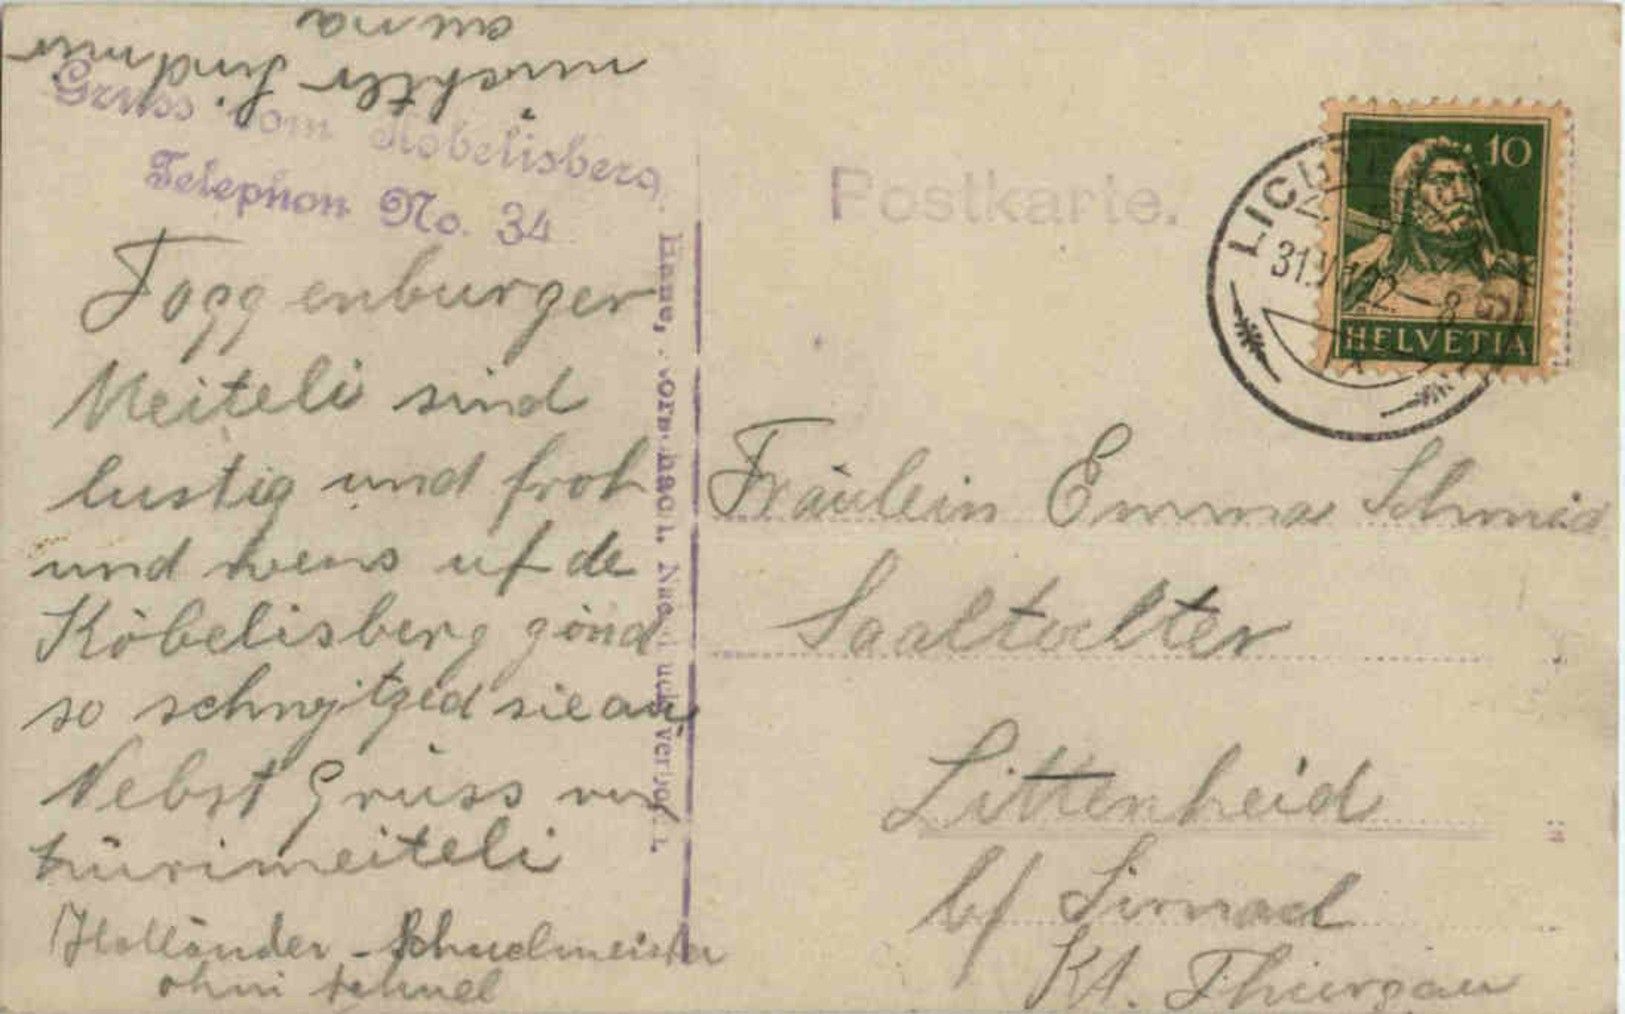 Gruss vom Köbelisberg
Telephon No. 34
Toggenburger
Meiteli sind
lustig und froh
und wens uf de
Köbelisberg gönd
so schnytzed sie au
Nebst Gruss von
zürimeiteli
Holländer - Schuelmeister
ohni schuel
nüechter sind mir
au na
Postkarte.
LICHT
31.V 22 - 8
10
HELVETIA
Fräulein Emma Schmid
Saaltochter
Littenheid
b/ Sirnach
Kt. Thurgau